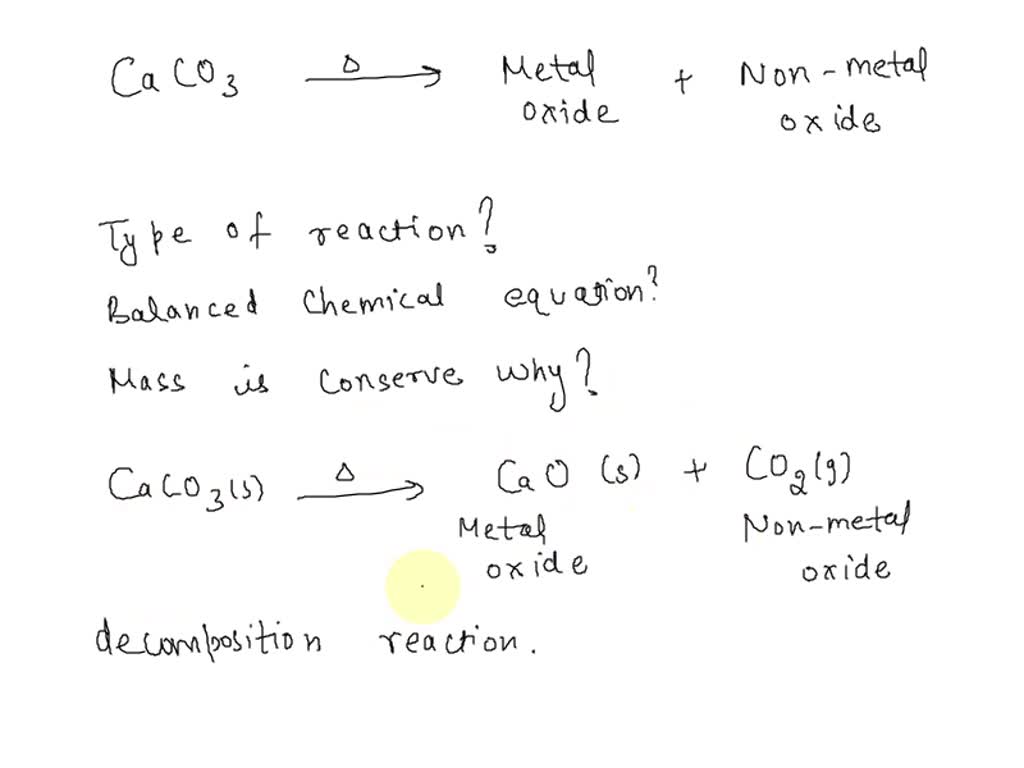 CaCO3 Δ→ Metal oxide + Non-metal oxide
Type of reaction?
Balanced Chemical equation?
Mass is conserve why?
CaCO3(s) Δ→ CaO (s) + CO2(g)
Metal oxide Non-metal oxide
decomposition reaction.